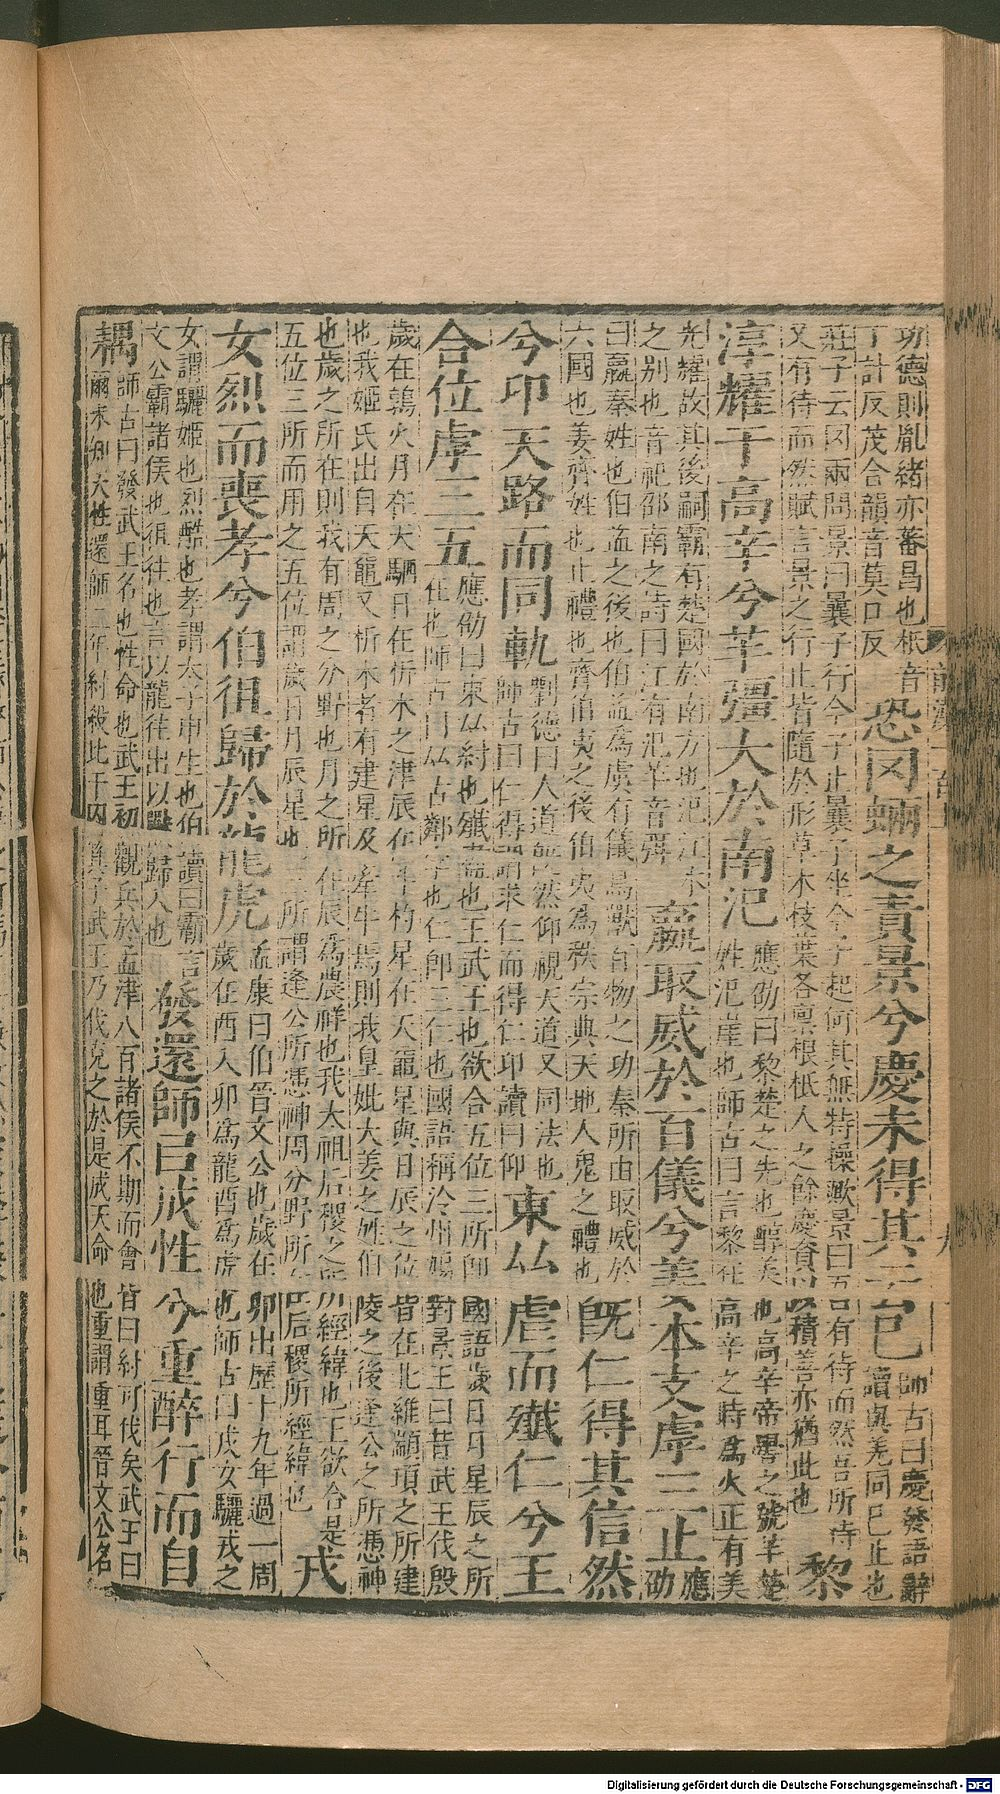 功德則胤緒亦蕃昌也柢音
丁計反茂合韻音莫口反
恐罔蜽之責景兮慶未得其云已
師古曰慶發語辭
讀與羌同已止也
莊子云罔兩問景曰曩子行今子止曩子坐今子起何其無特操歟景曰吾有待而然吾所待
又有待而然賦言景之行止皆隨於形草木枝葉各稟根柢人之餘慶資以積善亦猶此也
黎
淳耀于高辛兮羋彊大於南汜
應劭曰黎楚之先也醇美也高辛帝嚳之號羋楚
姓汜崖也師古曰言黎在高辛之時為火正有美
光耀故其後嗣霸有楚國於南方也汜江水
之別也音祀邵南之詩曰江有汜羋音弭
嬴取威於百儀兮姜本支虖三止
應
劭
曰嬴秦姓也伯益之後也伯益為虞有儀鳥獸百物之功秦所由取威於
六國也姜齊姓也止禮也齊伯夷之後伯夷為秩宗典天地人鬼之禮也
既仁得其信然
兮卬天路而同軌
劉德曰人道既然仰視天道又同法也
師古曰仁得謂求仁而得仁卬讀曰仰
東厸虐而殲仁兮王
合位虖三五
應劭曰東厸紂也殲盡也王武王也欲合五位三所即國語歲日月星辰之所
在也師古曰厸古鄰字也仁即三仁也國語稱泠州鳩對景王曰昔武王伐殷
歲在鶉火月在天駟日在析木之津辰在斗柄星在天黿星與日辰之位皆在北維顓頊之所建
也我姬氏出自天黿又析木者有建星及牽牛焉則我皇妣大姜之姪伯陵之後逢公之所憑神
也歲之所在則我有周之分野也月之所在辰為農祥也我太祖后稷之所經緯也王欲合是
五位三所而用之五位謂歲日月辰星也三所謂逢公所憑神周分野所在后稷所經緯也
戎
女烈而喪孝兮伯徂歸於龍虎
孟康曰伯晉文公也歲在卯出歷十九年過一周
歲在酉入卯為龍酉為虎也師古曰戎女驪戎之
女謂驪姬也烈酷也孝謂太子申生也伯讀曰霸言
文公霸諸侯也徂往也言以龍往出以虎歸入也
發還師曰成性兮重醉行而自
耦
師古曰發武王名也性命也武王初觀兵於孟津八百諸侯不期而會皆曰紂可伐矣武王曰
爾未知天性還師二年紂殺比干囚箕子武王乃伐克之於是成天命也重謂重耳晉文公名
Digitalisierung gefördert durch die Deutsche Forschungsgemeinschaft - DFG